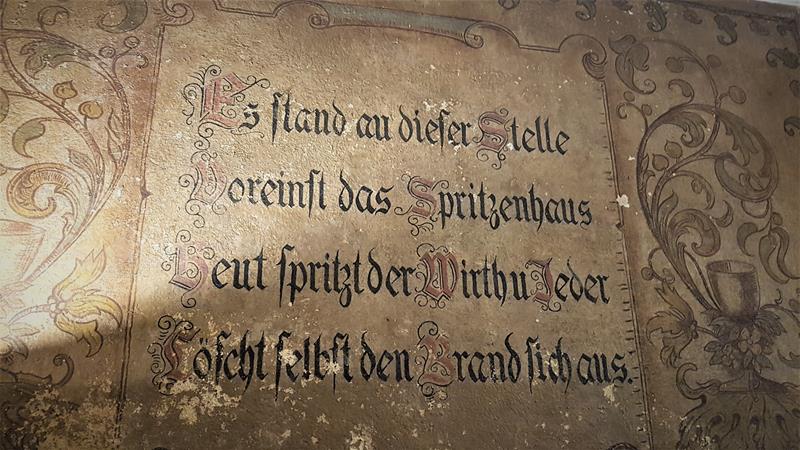 Es stand an dieser Stelle
Voreinst das Spritzenhaus
Heut spritzt der Wirth u Jeder
Löscht selbst den Brand sich aus.